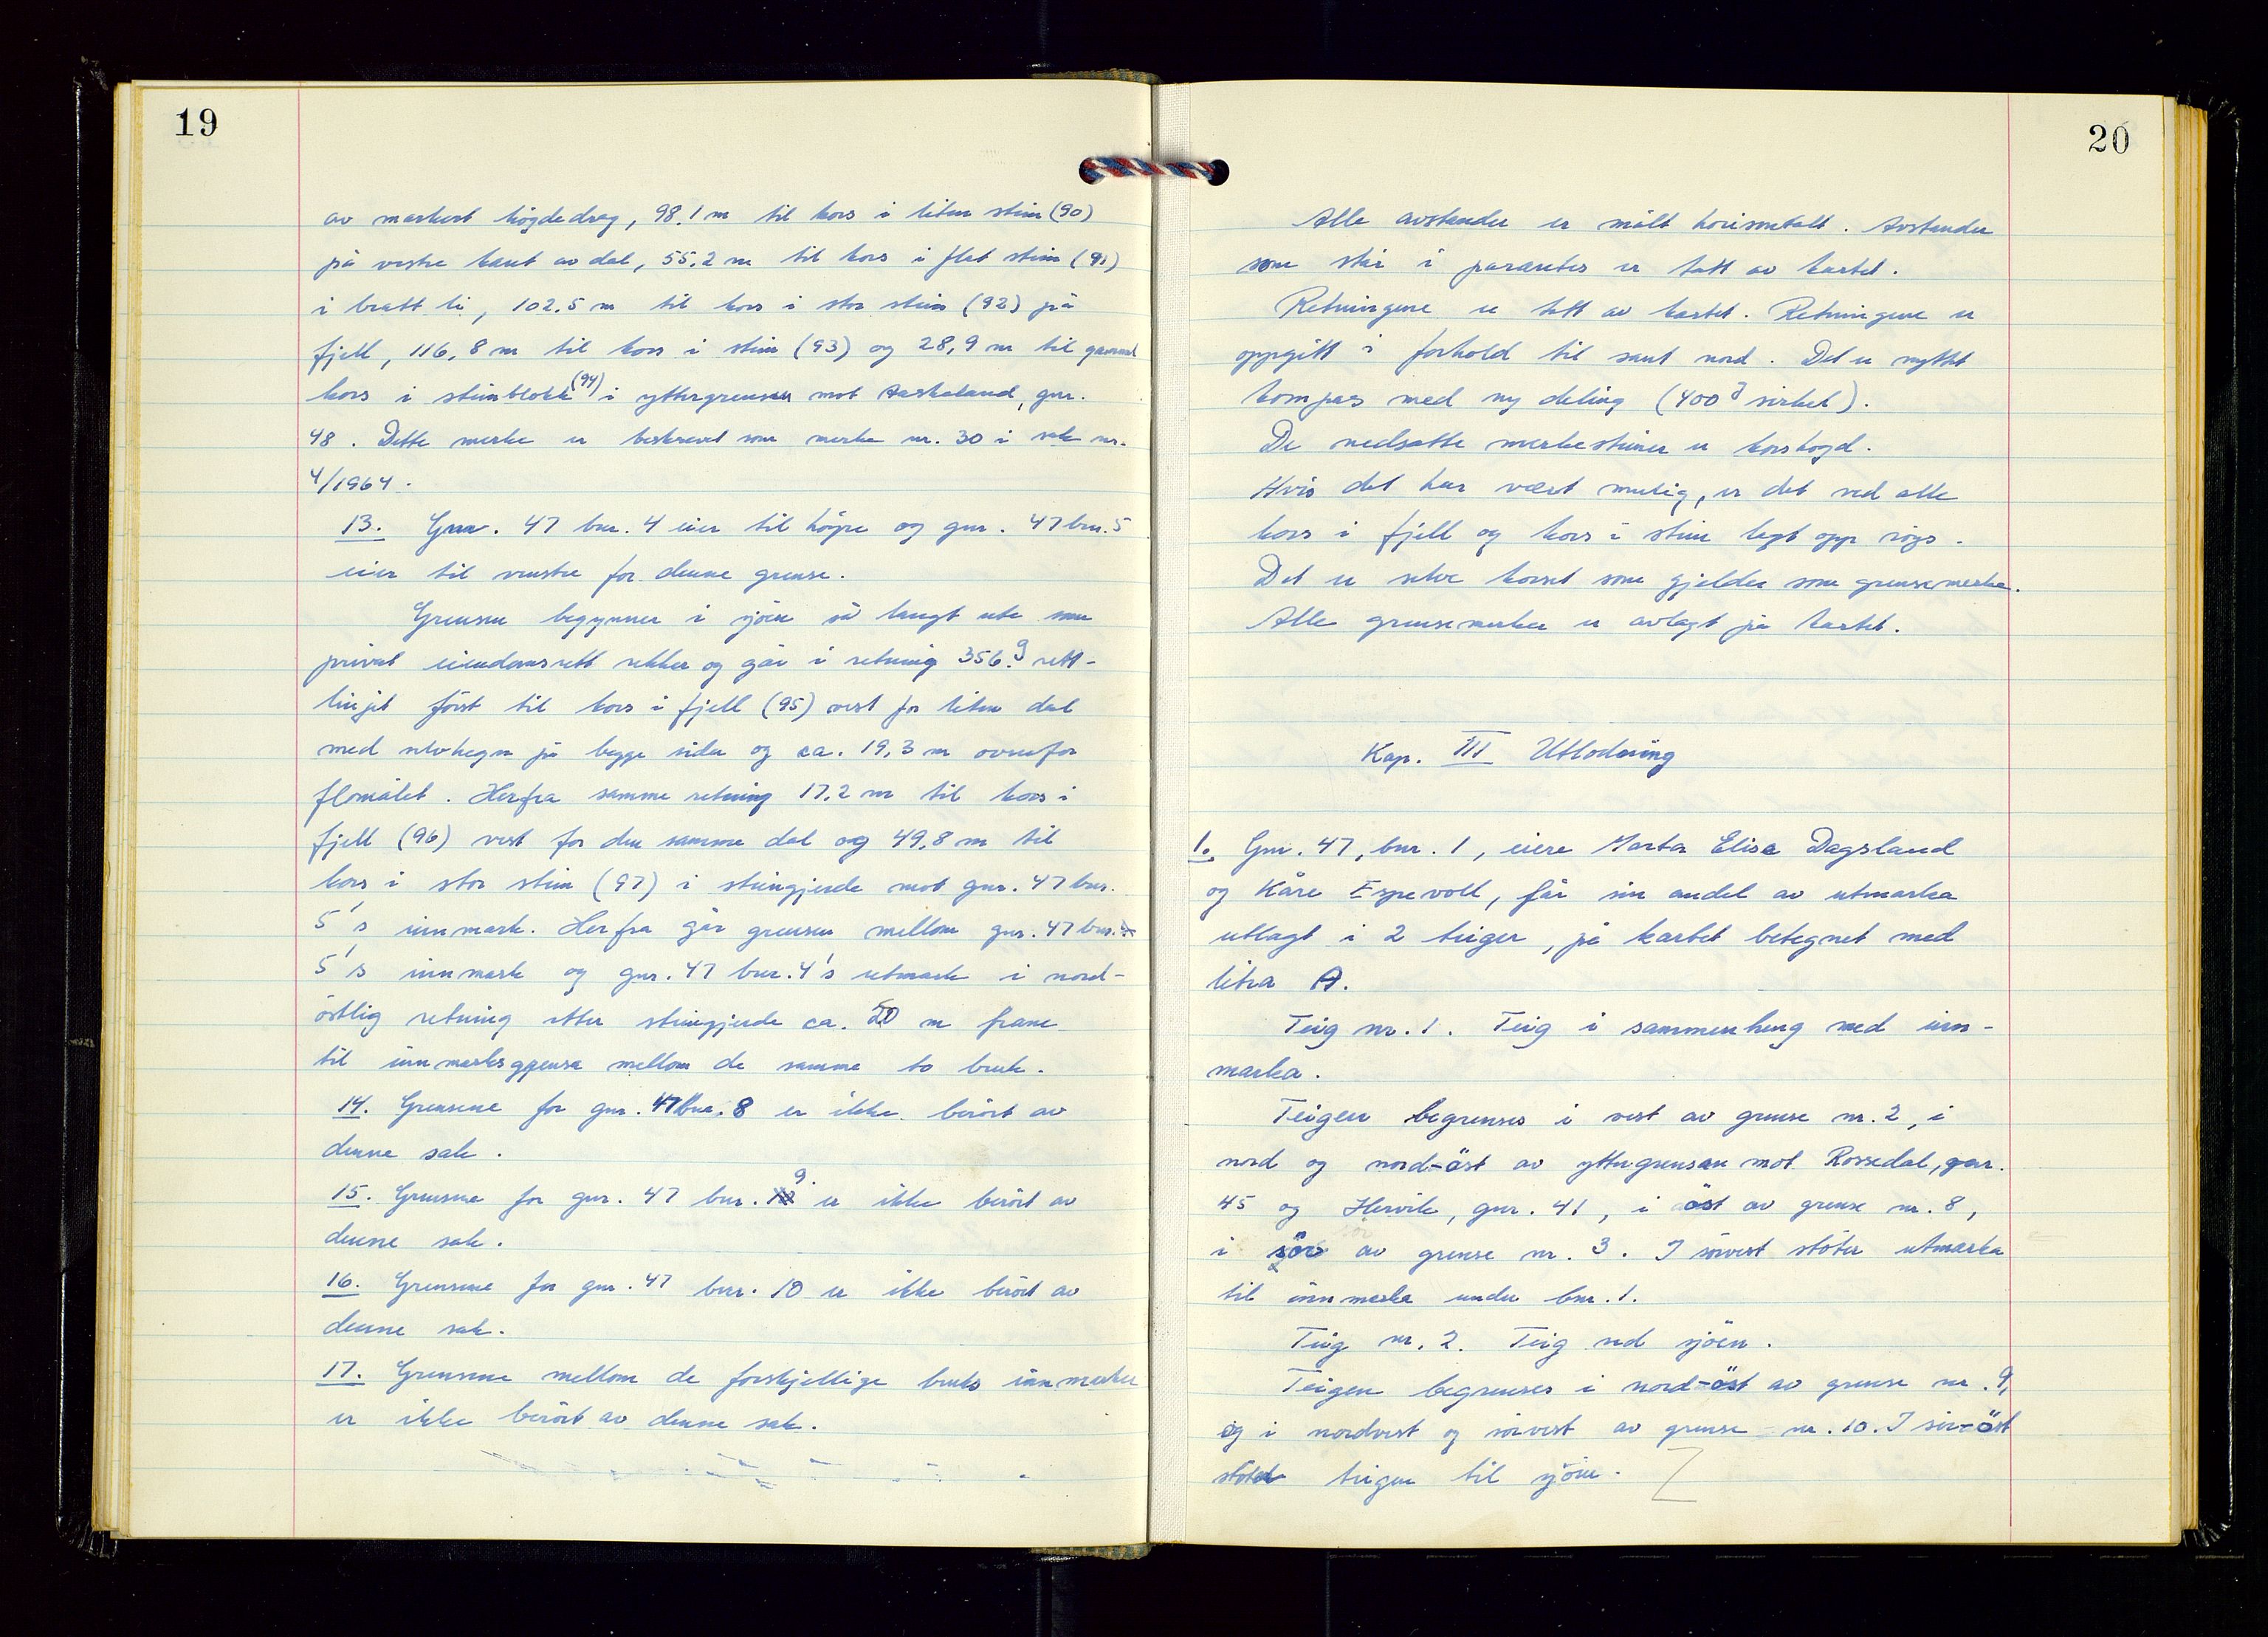 19
av markert högdedrag, 98.1 m til kors i liten stein (90)
på vestre kant av dal, 55,2 m til kors i flat stein (91)
i bratt li, 102.5 m til kors i stor stein (92) på
fjell, 116,8 m til kors i stein (93) og 28,9 m til gammel
kors i steinblokk (94) i yttergrensen mot Aaskaland, gnr.
48. Dette merke er beskrevet som merke nr. 30 i sak nr.
4/1964.
13. Gnr. 47 bnr. 4 eier til höyre og gnr. 47 bnr. 5
eier til venstre for denne grense.
Grensen begynner i sjöen så langt ute som
privat eiendomsrett rekker og går i retning 356.g rett-
linjet först til kors i fjell (95) vest for liten dal
med utvhegn på begge sider og ca. 19,3 m ovenfor
flomålet. Herfra samme retning 17.2 m til kors i
fjell (96) vest for den samme dal og 49,8 m til
kors i stor stein (97) i steingjerde mot gnr. 47 bnr.
5's innmark. Herfra går grensen mellom gnr. 47 bnr.
5's innmark og gnr. 47 bnr. 4's utmark i nord-
östlig retning etter steingjerde ca. 20 m fram
til innmarksgrense mellom de samme to bruk.
14. Grensene for gnr. 47 bnr. 8 er ikke berört av
denne sak.
15. Grensene for gnr. 47 bnr. 9 er ikke berört av
denne sak.
16. Grensene for gnr. 47 bnr. 10 er ikke berört av
denne sak.
17. Grensene mellom de forskjellige bruks innmarker
er ikke berört av denne sak.
20
Alle avstander er målt horisontalt. Avstander
som står i parantes er tatt av kartet.
Retningene er tatt av kartet. Retningene er
oppgitt i forhold til sant nord. Det er nyttet
kompas med ny deling (400g sirkel).
De nedsatte merkesteiner er korshogd.
Hvis det har vært mulig, er det ved alle
kors i fjell og kors i stein lagt opp röys.
Det er selve korset som gjelder som grensemerke.
Alle grensemerker er avlagt på kartet.
Kap. III Utlodning
1. Gnr. 47, bnr. 1, eiere Marta Elise Dagsland
og Kåre Espevoll, får sin andel av utmarka
utlagt i 2 teiger, på kartet betegnet med
litra A.
Teig nr. 1. Teig i sammenheng med inn-
marka.
Teigen begrenses i vest av grense nr. 2, i
nord og nord-öst av yttergrensen mot Rossedal, gnr.
45 og Hervik, gnr. 41, i öst av grense nr. 8,
i sör av grense nr. 3. I sörvest stöter utmarka
til innmarka under bnr. 1.
Teig nr. 2. Teig ved sjöen.
Teigen begrenses i nord-öst av grense nr. 9,
og i nordvest og sörvest av grense nr. 10. I sör-öst
stöter teigen til sjöen.